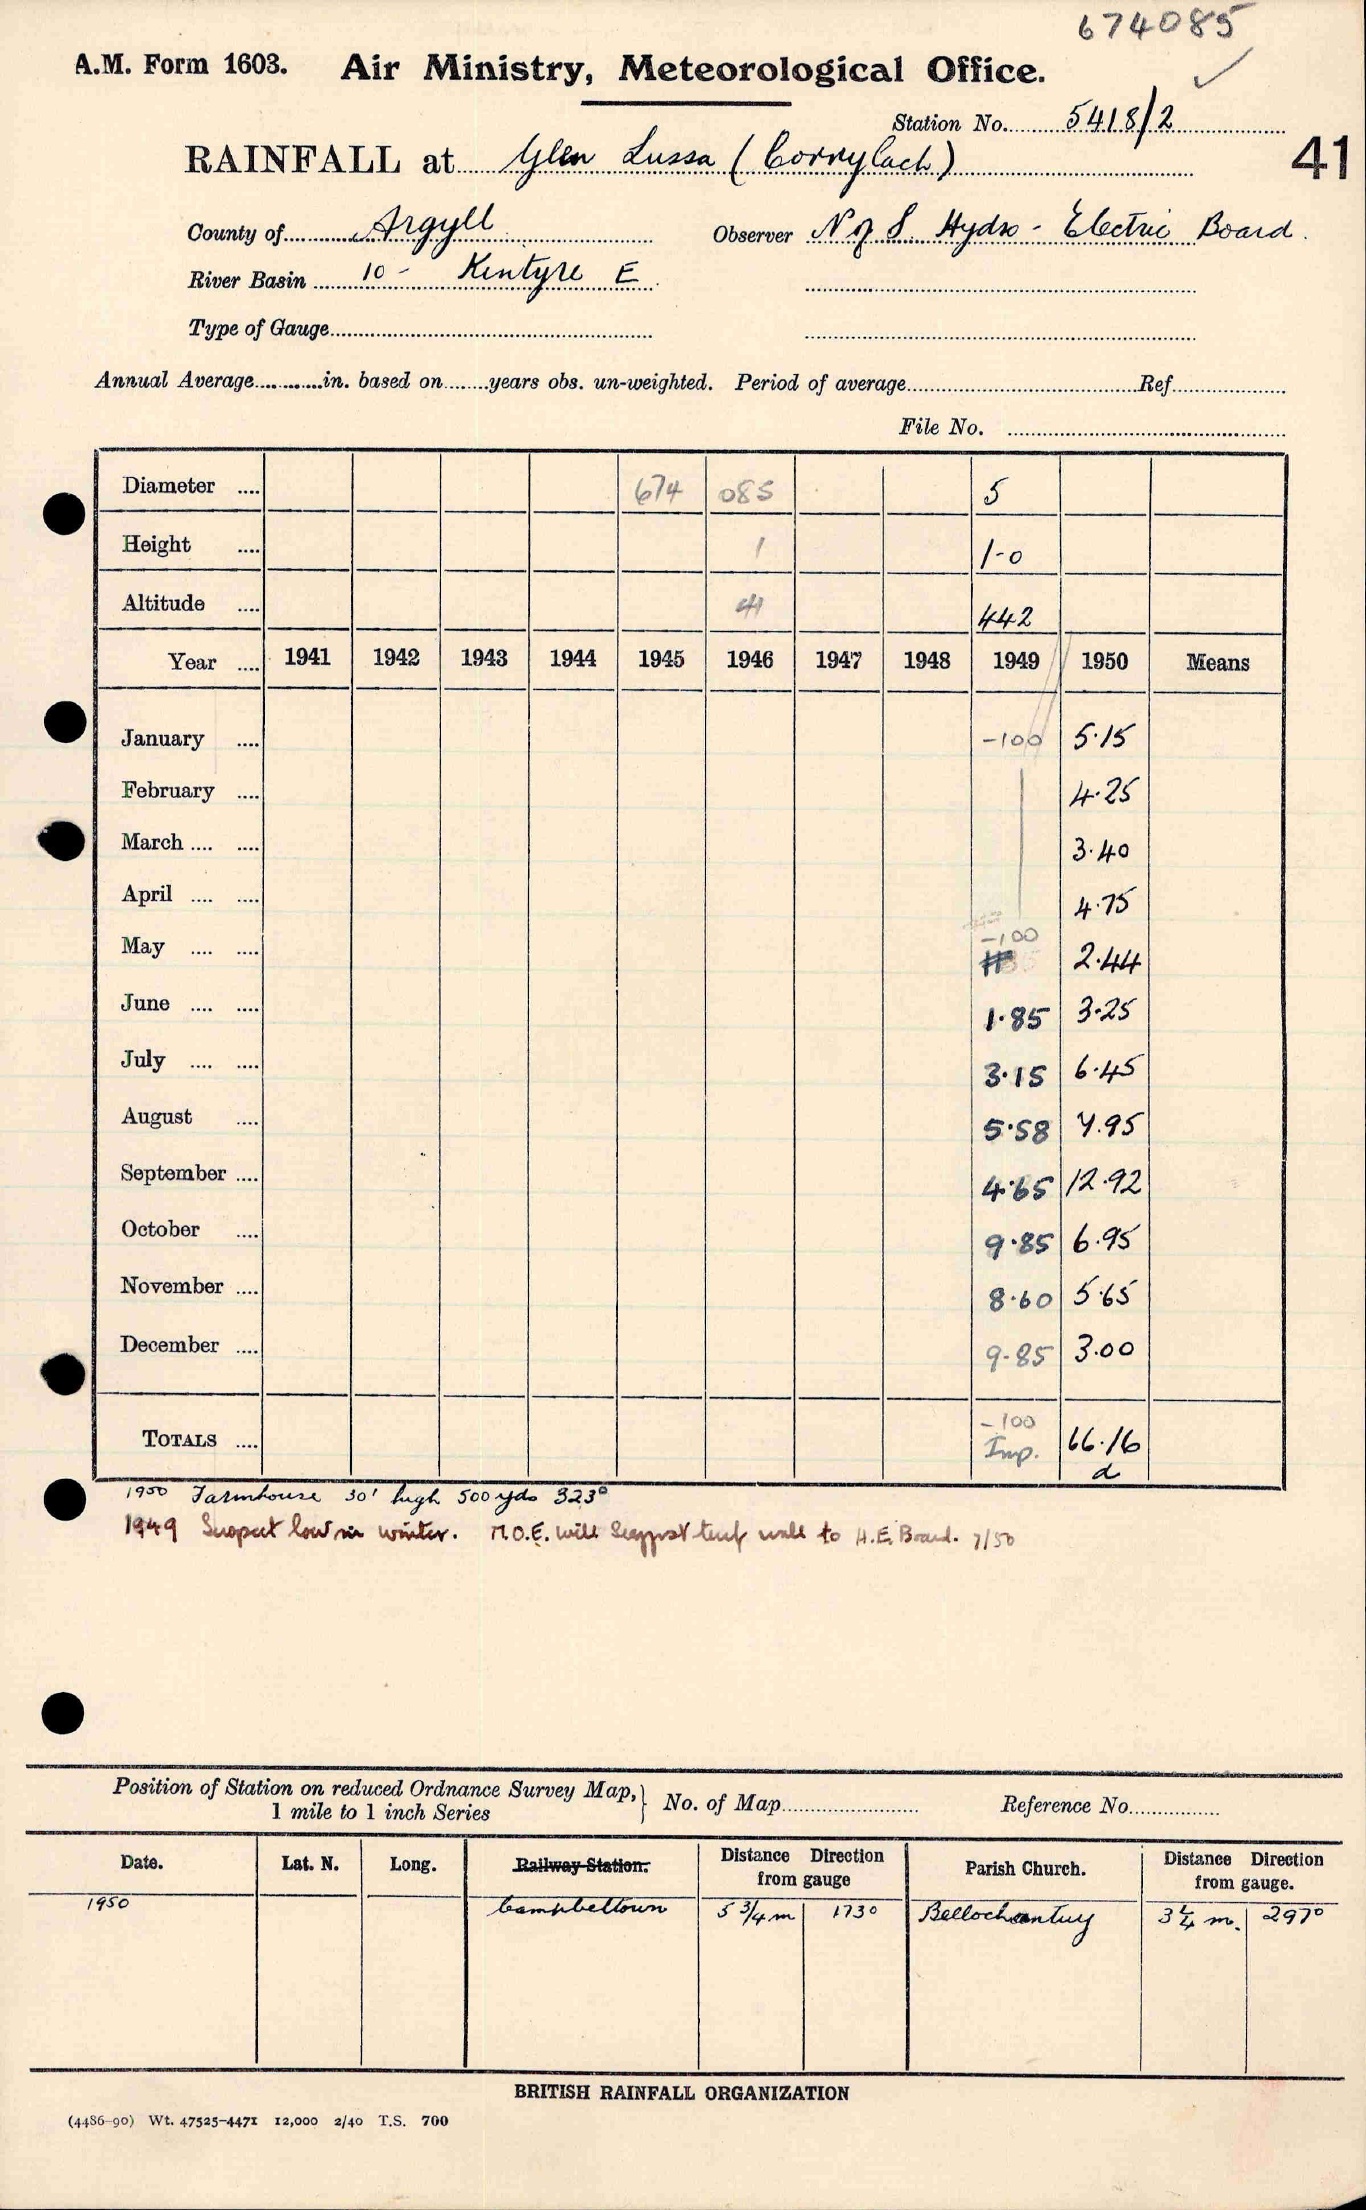 674085
A.M. Form 1603. Air Ministry, Meteorological Office.
Station No. 5418/2
RAINFALL at Glen Lussa (Corrylach) 41
County of Argyll Observer N of S Hydro-Electric Board.
River Basin 10 - Kintyre E
Type of Gauge
Annual Average in. based on years obs. un-weighted. Period of average Ref
File No.
Diameter 674 085 5
Height 1 1-0
Altitude 41 442
Year 1941 1942 1943 1944 1945 1946 1947 1948 1949 1950 Means
January -100 5.15
February 4.25
March 3.40
April 4.75
-100
May 2.44
June 1.85 3.25
July 3.15 6.45
August 5.58 7.95
September 4.65 12.92
October 9.85 6.95
November 8.60 5.65
December 9.85 3.00
-100
TOTALS Imp. 66.16
d
1950 Farmhouse 30' high 500 yds 323°
1949 Suspect low in winter. M.O.E. will suggest turf wall to H.E. Board. 7/50
Position of Station on reduced Ordnance Survey Map,
1 mile to 1 inch Series No. of Map Reference No.
Date. Lat. N. Long. Railway Station. Distance Direction from gauge Parish Church. Distance Direction from gauge.
1950 Campbeltown 5 3/4 m 173° Bellochantuy 3 1/4 m. 297°
BRITISH RAINFALL ORGANIZATION
(4486-90) Wt. 47525-4471 12,000 2/40 T.S. 700